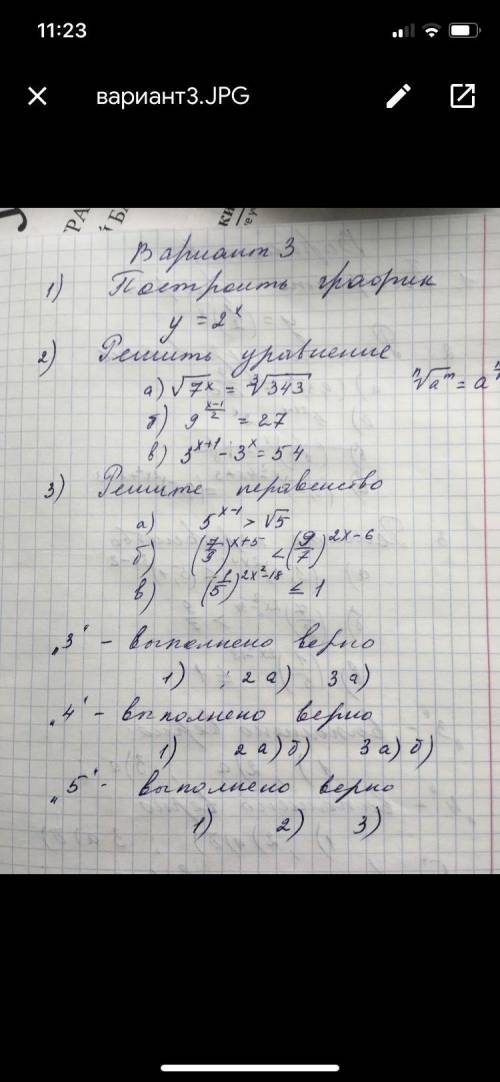 11:23
вариант3.JPG
Вариант 3
1) Построить график
y = 2^x
2) Решить уравнение
а) √7^x = ∛343 ⁿ√a^m = a
б) 9^((x-1)/2) = 27
в) 3^(x+1) - 3^x = 54
3) Решите неравенство
а) 5^(x-1) > √5
б) (7/9)^(x+5) < (9/7)^(2x-6)
в) (1/5)^(2x²-18) ≤ 1
„3" - выполнено верно
1) ; 2 а) 3 а)
„4" - выполнено верно
1) 2 а) б) 3 а) б)
„5" - выполнено верно
1) 2) 3)